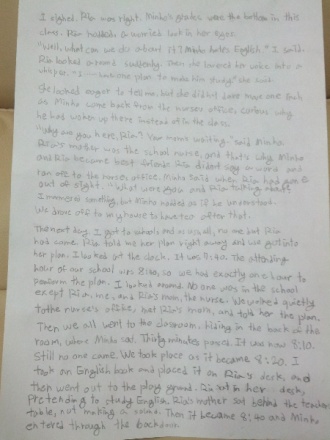 I sighed. Ria was right. Minho's grades were the bottom in this
class. Ria nodded, a worried look in her eyes.
"Well, what can we do about it? Minho hates English." I said.
Ria looked around suddenly. Then she lowered her voice into a
whisper. "I — have one plan to make him study." she said.
She looked eager to tell me, but she didn't dare move one inch
as Minho came back from the nurse's office, confused why
he had woken up there instead of in the class.
"Why are you here, Ria? Your mom's waiting." said Minho.
Ria's mother was the school nurse, and that's why Minho
and Ria became best friends. Ria didn't say a word and
ran off to the nurse's office. Minho said when Ria had gone
out of sight, "What were you and Ria talking about?"
I murmured something, but Minho nodded as if he understood.
We drove off to my house to have tea after that.
The next day, I got to school and as usual, no one but Ria
had come. Ria told me her plan right away and we got into
her plan. I looked at the clock. It was 7:40. The attending
hour of our school was 8:40, so we had exactly one hour to
perform the plan. I looked around. No one was in the school
except Ria, me, and Ria's mom, the nurse. We walked quietly
to the nurse's office, met Ria's mom, and told her the plan.
Then we all went to the classroom, hiding in the back of the
room, where Minho sat. Thirty minutes passed. It was now 8:10.
Still no one came. We took place as it became 8:20. I
took an English book and placed it on Ria's desk, and
then went out to the play ground. Ria sat in her desk,
pretending to study English, Ria's mother sat behind the teacher's
table, not making a sound. Then it became 8:40 and Minho
entered through the backdoor.